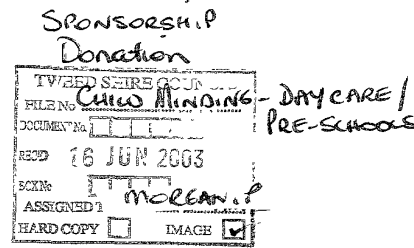 SPONSORSHIP
Donation
TWEED SHIRE COUNCIL
FILE No CHILD MINDING - DAYCARE /
PRE-SCHOOLS
DOCUMENT No
REC'D 16 JUN 2003
BOX No
ASSIGNED T MORGAN. P
HARD COPY IMAGE ✓